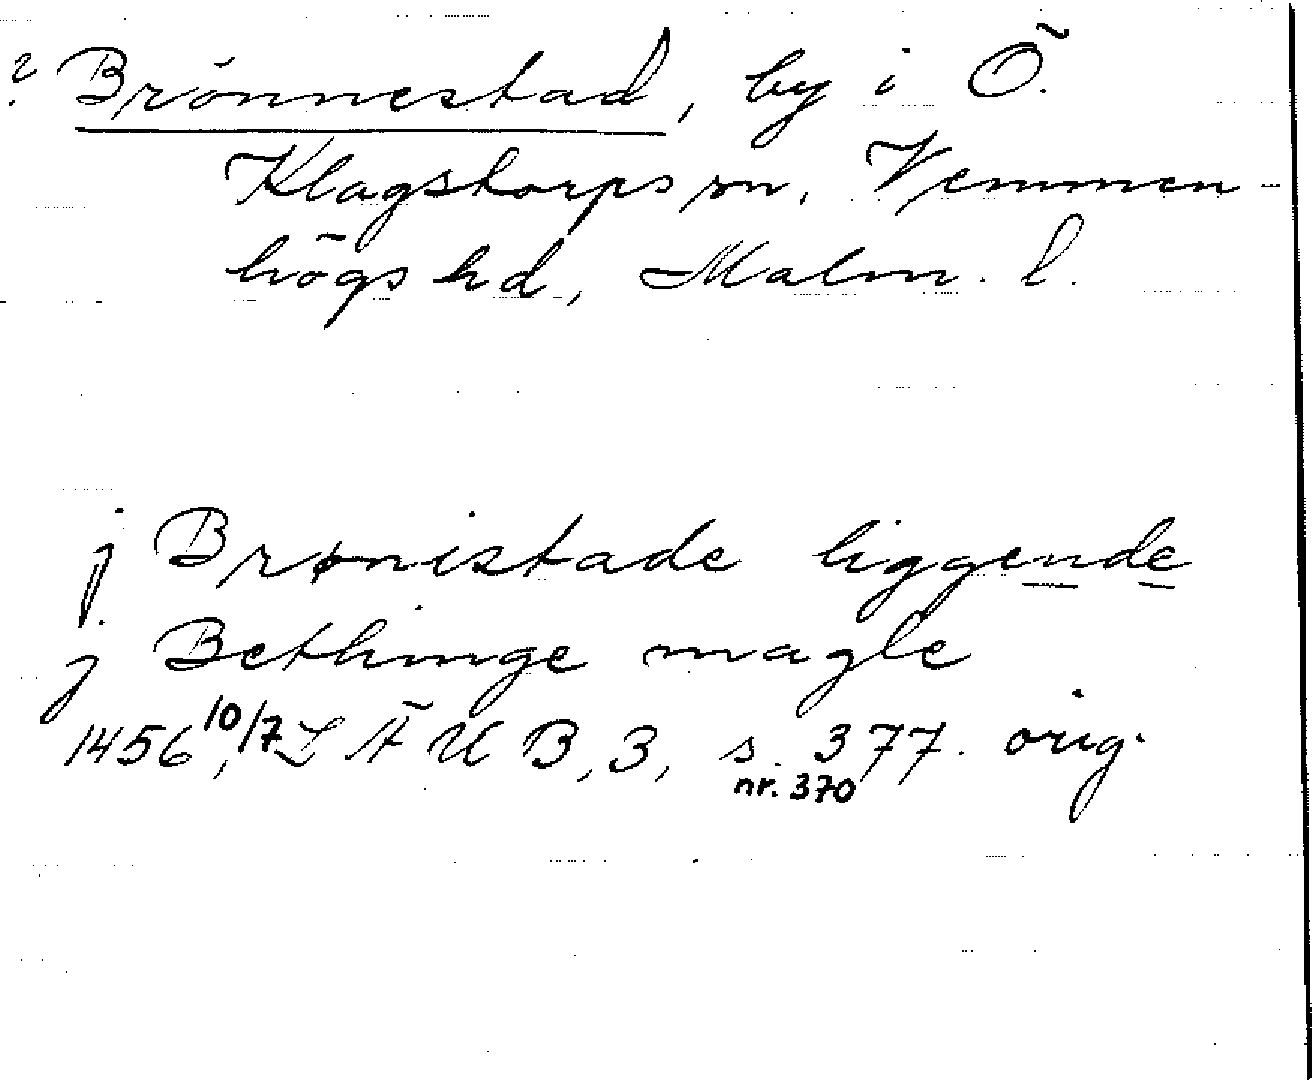 ? Brönnestad, by i Ö.
Klagstorps sn, Vemmen-
högs hd, Malm. l.
j Brønistade liggende
j Bethinge magle
1456 10/7, LÄUB, 3, s. 377. orig.
nr. 370